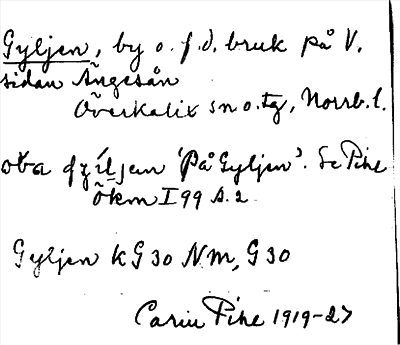 Gyljen, by o. f.d. bruk på V.
sidan Ängesån
Överkalix sn o. tg, Norrb. l.
'På Gyljen'. Se Pihl
Ökm I 99 s. 2
Gyljen kG30 Nm, G30
Carin Pihl 1919-27